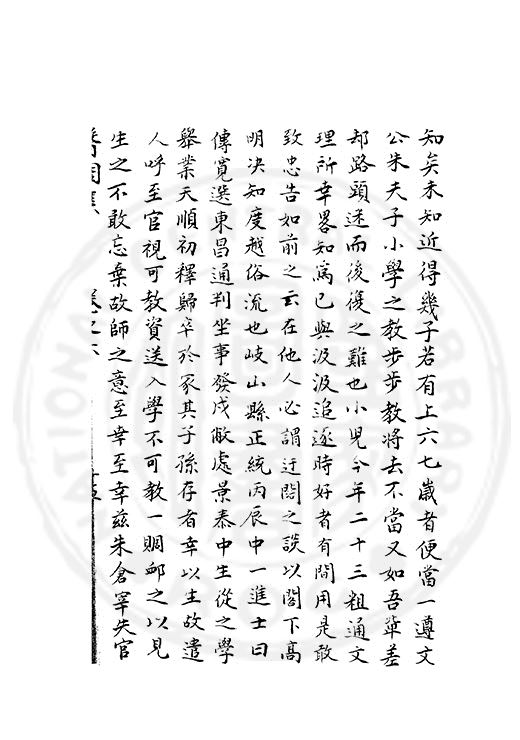 知矣未知近得幾子若有上六七歲者便當一遵文
公朱夫子小學之教步步教將去不當又如吾輩差
却路頭迷而後復之難也小兒今年二十三粗通文
理所幸畧知為已與汲汲追逐時好者有間用是敢
致忠告如前之云在他人必謂迂闊之談以閤下高
明决知度越俗流也岐山縣正統丙辰中一進士曰
傅寛選東昌通判坐事發戍敝處景泰中生從之學
舉業天順初釋歸卒於家其子孫存者幸以生故遣
人呼至官視可教資送入學不可教一賙卹之以見
生之不敢忘棄故師之意至幸至幸兹朱倉宰失官